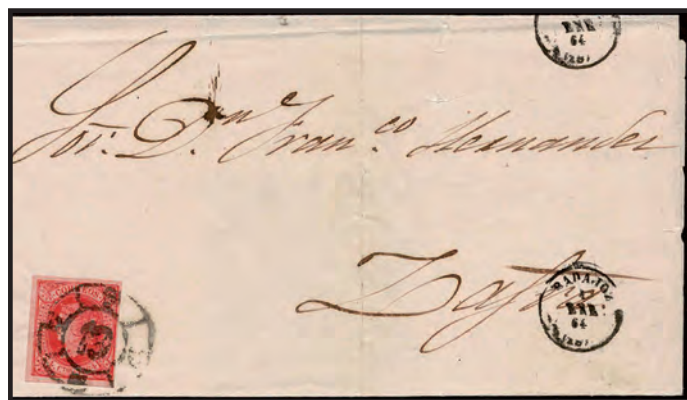 ENE
64
(28)
Sor. D.n Fran.co Hernandez
Zafra
BADAJOZ
ENE
64
(28)
53